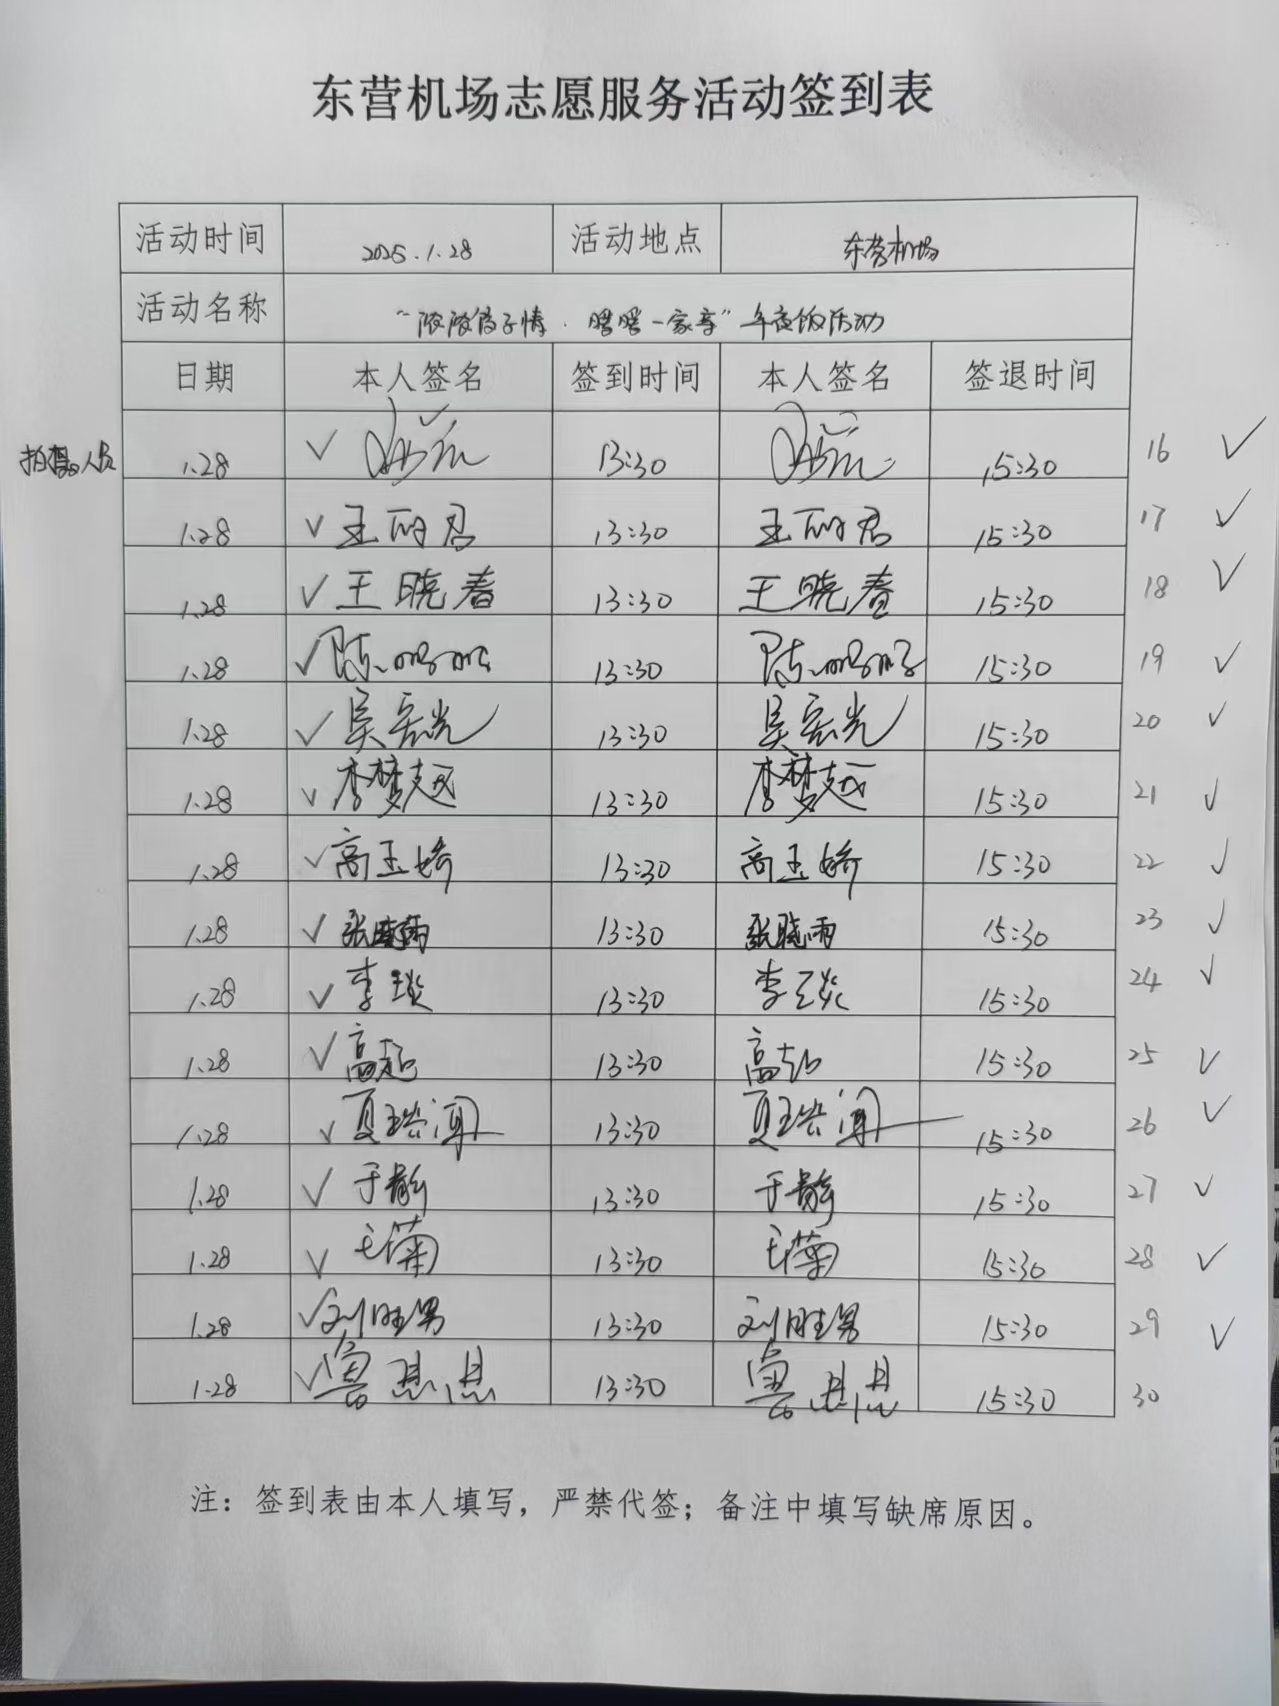 东营机场志愿服务活动签到表
活动时间 2025.1.28 活动地点 东营机场
活动名称 “浓浓饺子情·暖暖一家亲”年夜饭活动
日期 本人签名 签到时间 本人签名 签退时间
拍摄人员 1.28 ✓ 13:30 15:30 16 ✓
1.28 ✓ 王丽君 13:30 王丽君 15:30 17 ✓
1.28 ✓ 王晓春 13:30 王晓春 15:30 18 ✓
1.28 ✓ 陈 13:30 陈 15:30 19 ✓
1.28 ✓ 吴宏光 13:30 吴宏光 15:30 20 ✓
1.28 ✓ 李梦越 13:30 李梦越 15:30 21 ✓
1.28 ✓ 高玉娇 13:30 高玉娇 15:30 22 ✓
1.28 ✓ 张晓雨 13:30 张晓雨 15:30 23 ✓
1.28 ✓ 李琰 13:30 李琰 15:30 24 ✓
1.28 ✓ 高超 13:30 高超 15:30 25 ✓
1.28 ✓ 夏 13:30 夏 15:30 26 ✓
1.28 ✓ 于静 13:30 于静 15:30 27 ✓
1.28 ✓ 王菊 13:30 王菊 15:30 28 ✓
1.28 ✓ 刘胜男 13:30 刘胜男 15:30 29 ✓
1.28 ✓ 鲁思思 13:30 鲁思思 15:30 30
注：签到表由本人填写，严禁代签；备注中填写缺席原因。